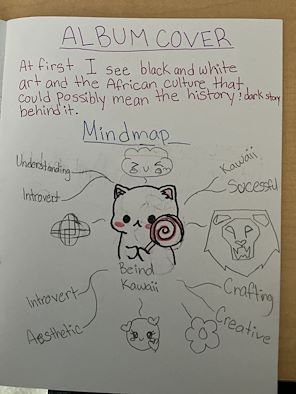 ALBUM COVER
At first I see black and white
art and the African culture that
could possibly mean the history! dark story
behind it.
Mindmap
Understanding
Introvert
Kawaii
Sucessful
Beind
Kawaii
Introvert
Aesthetic
Crafting
Creative